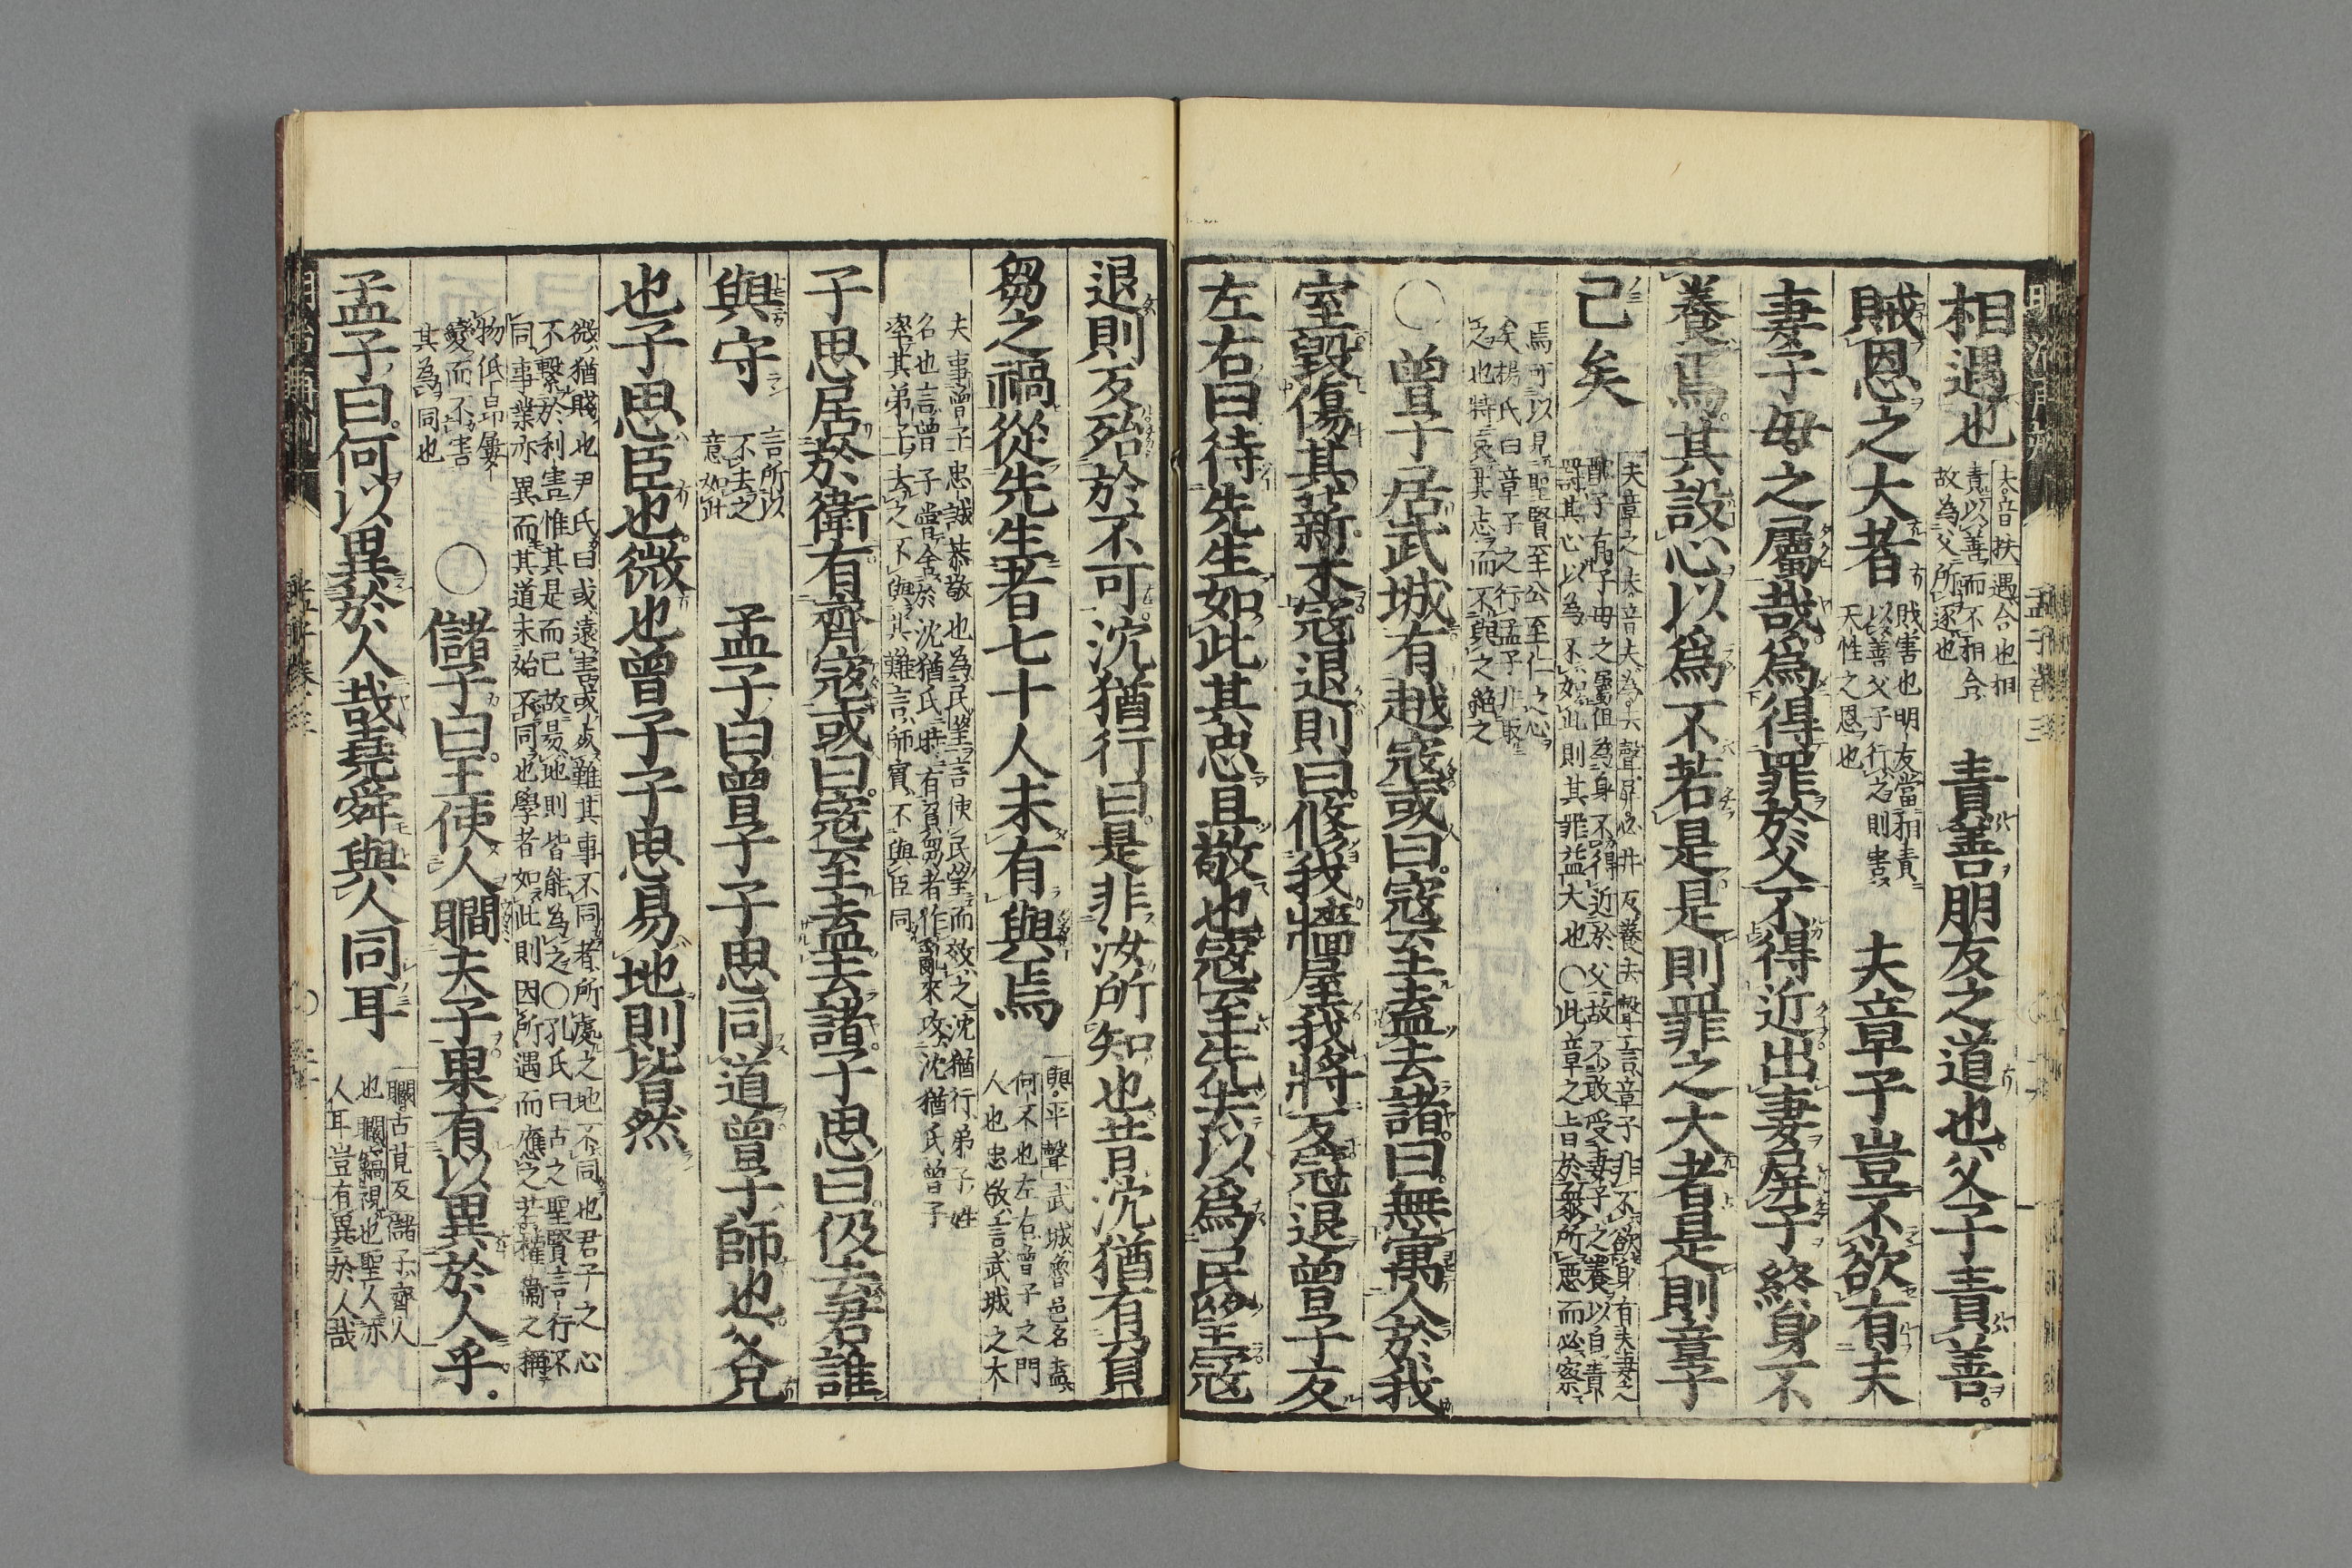 相遇也
夫音扶遇合也相
責以善而不相合
故為父所逐也
責善朋友之道也父子責善
賊恩之大者
賊害也朋友當相責
以善父子行之則害
天性之恩也
夫章子豈不欲有夫
妻子母之屬哉爲得罪於父不得近出妻屏子終身不
養焉其設心以爲不若是是則罪之大者是則章子
已矣
夫章之夫音夫為去聲屏必井反養去聲言章子非不欲身有夫妻之
配子有子母之屬但為身不得近於父故不敢受妻子之養以自責
罰其心以為不如此則其罪益大也○此章之旨於眾所惡而必察
焉可以見聖賢至公至仁之心
矣楊氏曰章子之行孟子非取
之也特哀其志而不與之絶之
○曽子居武城有越寇或曰寇至盍去諸曰無寓人於我
室毀傷其薪木寇退則曰修我牆屋我將反寇退曽子反
左右曰待先生如此其忠且敬也寇至先去以爲民望寇
退則反殆於不可沈猶行曰是非汝所知也昔沈猶有負
芻之禍從先生者七十人未有與焉
與平聲武城魯邑名盍
何不也左右曽子之門
人也忠敬言武城之大
夫事曽子忠誠恭敬也為民望言使民望而效之沈猶行弟子姓
名也言曽子嘗舍於沈猶氏時有負芻者作亂來攻沈猶氏曽子
率其弟子去之不與其難言師賓不與臣同
子思居於衛有齊寇或曰寇至盍去諸子思曰伋去君誰
與守
言所以
不去之
意如此
孟子曰曽子子思同道曽子師也父兄
也子思臣也微也曽子子思易地則皆然
微猶賤也尹氏曰或遠害或死難其事不同者所處之地不同也君子之心
不繫於利害惟其是而已故易地則皆能為之○孔氏曰古之聖賢言行不
同事業亦異而其道未始不同也學者知此則因所遇而應之若權衡之稱
物低昂屢
變而不害
其為同也
○儲子曰王使人瞷夫子果有以異於人乎
孟子曰何以異於人哉堯舜與人同耳
瞷古莧反儲子齊人
也瞷竊視也聖人亦
人耳豈有異於人哉